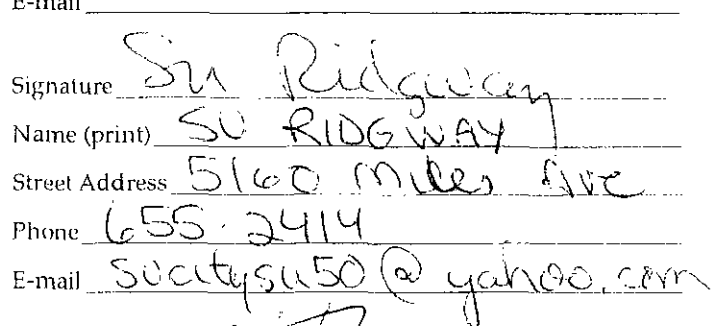 E-mail
Signature Su Ridgway
Name (print) SU RIDGWAY
Street Address 5160 Miles Ave
Phone 655-2414
E-mail sucitysu50@yahoo.com